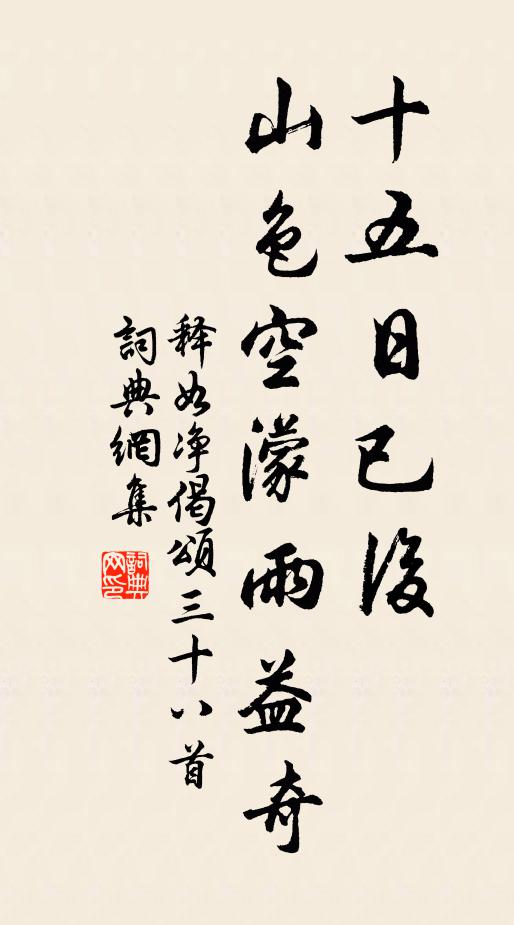 十五日已後
山色空濛雨益奇
释如净偈頌三十八首
詞典網集
詞典網印